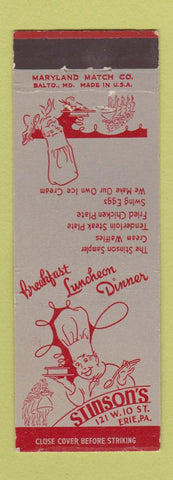 MARYLAND MATCH CO.
BALTO., MD. MADE IN U.S.A.
The Stinson Sampler
Cream Waffles
Tenderloin Steak Plate
Fried Chicken Plate
Swing Eggs
We Make Our Own Ice Cream
Breakfast
Luncheon
Dinner
STINSON'S
121 W. 10 ST.
ERIE, PA.
CLOSE COVER BEFORE STRIKING